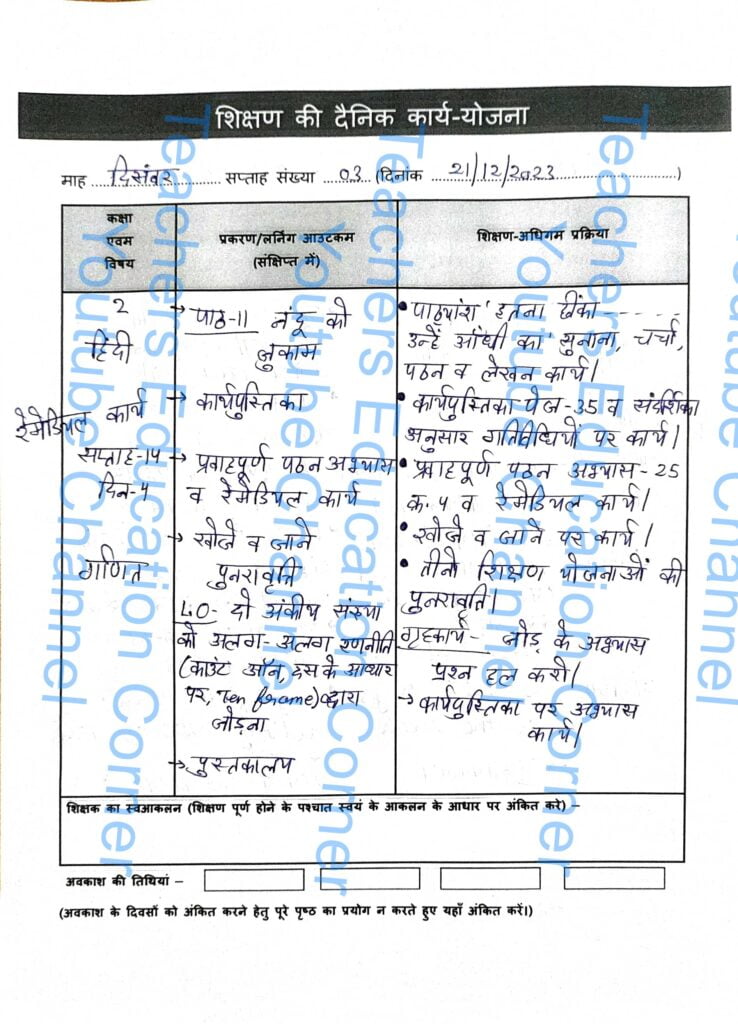 शिक्षण की दैनिक कार्य-योजना
माह दिसंबर सप्ताह संख्या 03 (दिनांक 21/12/2023)
कक्षा
एवम
विषय
प्रकरण/लर्निंग आउटकम
(संक्षिप्त में)
शिक्षण-अधिगम प्रक्रिया
2
हिंदी
रेमेडियल कार्य
सप्ताह-14
दिन-4
गणित
→ पाठ-11 नंदू को
जुकाम
→ कार्यपुस्तिका
→ प्रवाहपूर्ण पठन अभ्यास
व रेमेडियल कार्य
→ खोजे व जाने
पुनरावृति
LO- दो अंकीय संख्या
को अलग-अलग रणनीति
(काउंट ऑन, दस के आधार
पर, Ten frame) द्वारा
जोड़ना
→ पुस्तकालय
• पाठ्यांश 'इतना छींका -----
उन्हें आँधी का' सुनाना, चर्चा,
पठन व लेखन कार्य।
• कार्यपुस्तिका पेज-35 व संदर्शिका
अनुसार गतिविधियों पर कार्य।
• प्रवाहपूर्ण पठन अभ्यास-25
क्र. 4 व रेमेडियल कार्य।
• खोजे व जाने पर कार्य।
• तीनो शिक्षण योजनाओं की
पुनरावृति।
गृहकार्य- जोड़ के अभ्यास
प्रश्न हल करो।
→ कार्यपुस्तिका पर अभ्यास
कार्य।
शिक्षक का स्वआकलन (शिक्षण पूर्ण होने के पश्चात स्वयं के आकलन के आधार पर अंकित करे) –
अवकाश की तिथियां –
(अवकाश के दिवसों को अंकित करने हेतु पूरे पृष्ठ का प्रयोग न करते हुए यहाँ अंकित करें।)
Teachers Education Corner
Youtube Channel
Teachers Education Corner
Youtube Channel
Teachers Education Corner
Youtube Channel